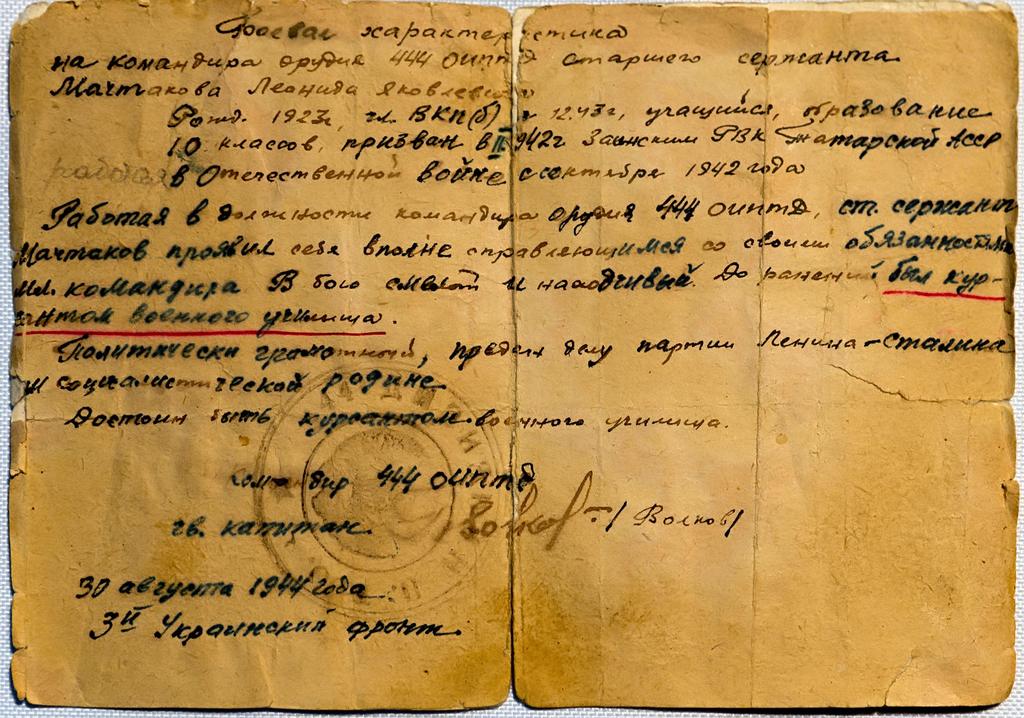 Боевая характеристика
на командира орудия 444 ОИПТД старшего сержанта
Мачтакова Леонида Яковлевича
Рожд. 1923г, чл. ВКП(б) с 12.43г, учащийся, образование
10 классов, призван в II 1942г Заинским РВК Татарской АССР
работая в Отечественной войне с сентября 1942 года
Работая в должности командира орудия 444 ОИПТД, ст. сержант
Мачтаков проявил себя вполне справляющимся со своими обязанностями
мл. командира В бою смелый и находчивый. До ранения был кур-
сантом военного училища.
Политически грамотный, предан делу партии Ленина-Сталина
и социалистической родине
Достоин быть курсантом военного училища.
Командир 444 ОИПТД
гв. капитан. Волков /Волков/
30 августа 1944 года
3й Украинский фронт.